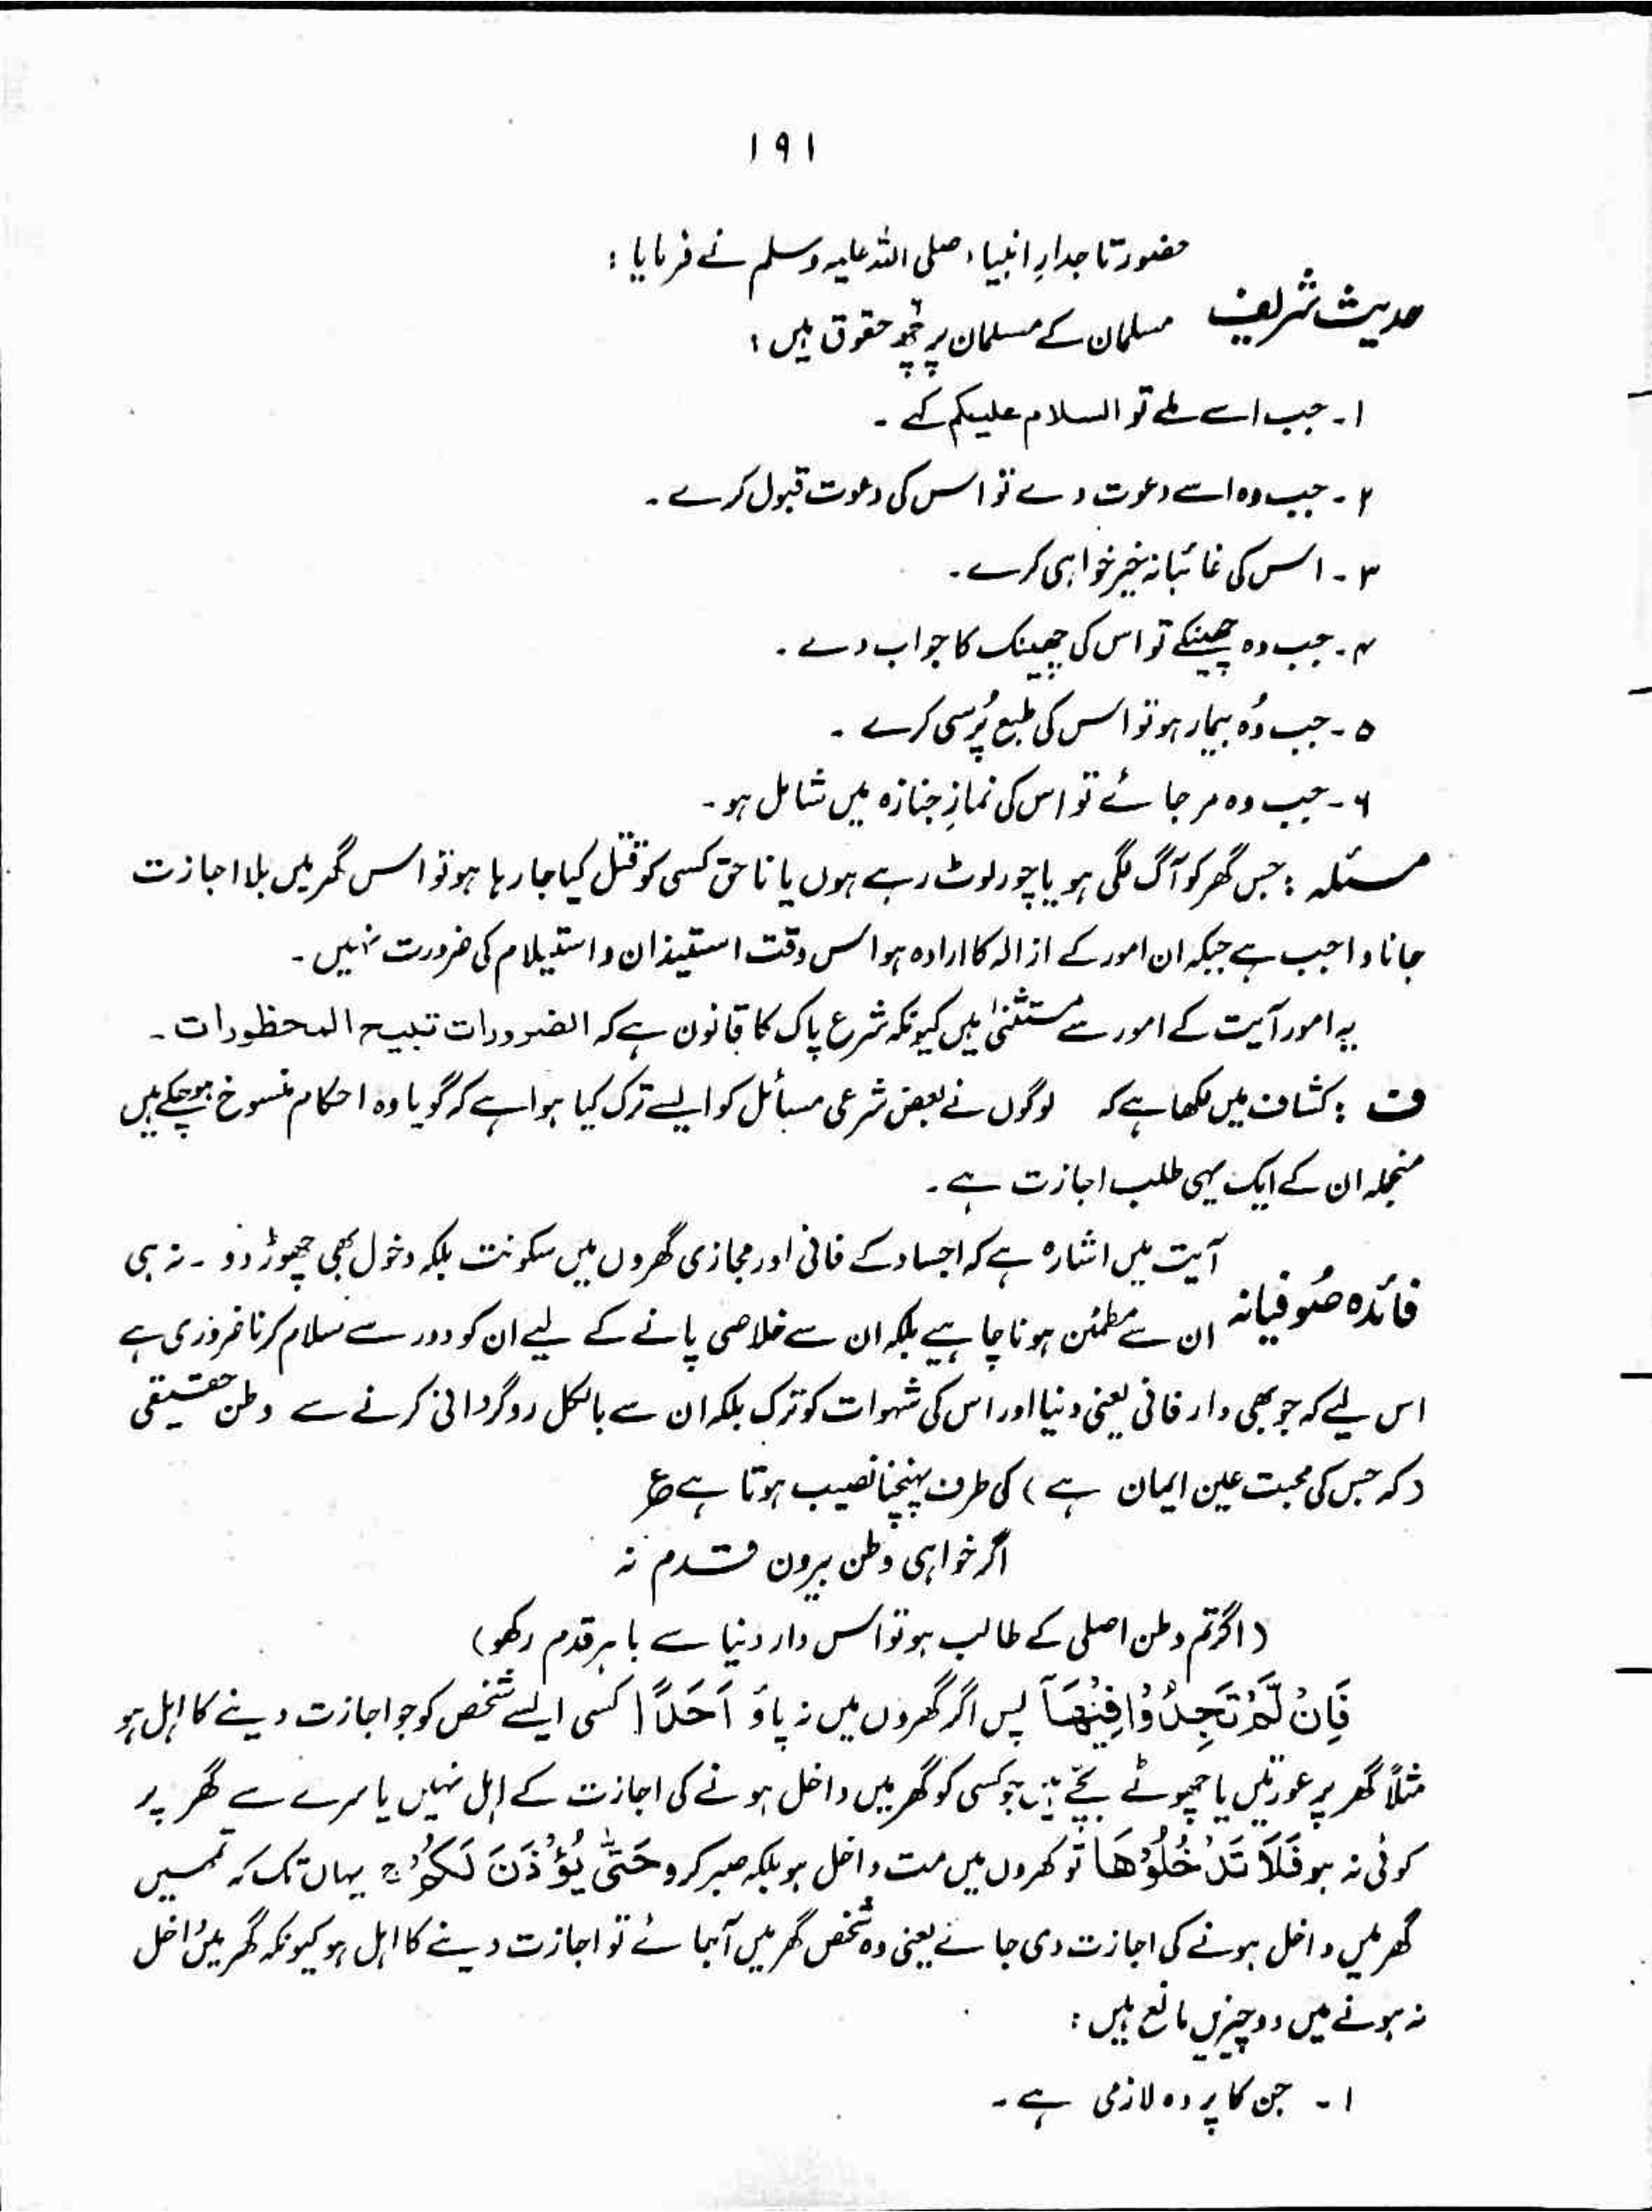 ۱۹۱
حضور تاجدارِ انبیاء صلی اللہ علیہ وسلم نے فرمایا :
حدیث شریف
مسلمان کے مسلمان پر چھ حقوق ہیں :
۱۔ جب اسے ملے تو السلام علیکم کہے ۔
۲۔ جب وہ اسے دعوت دے تو اس کی دعوت قبول کرے ۔
۳۔ اس کی غائبانہ خیر خواہی کرے ۔
۴۔ جب وہ چھینکے تو اس کی چھینک کا جواب دے ۔
۵۔ جب وُہ بیمار ہو تو اس کی طبع پُرسی کرے ۔
۶۔ جب وہ مر جائے تو اس کی نمازِ جنازہ میں شامل ہو ۔
مسئلہ : جس گھر کو آگ لگی ہو یا چور لوٹ رہے ہوں یا ناحق کسی کو قتل کیا جا رہا ہو تو اس گھر میں بلا اجازت
جانا واجب ہے جبکہ ان امور کے ازالہ کا ارادہ ہو اس وقت استیذان و استیلام کی ضرورت نہیں ۔
یہ امور آیت کے امور سے مستثنیٰ ہیں کیونکہ شرع پاک کا قانون ہے کہ الضرورات تبیح المحظورات ۔
ف : کشاف میں لکھا ہے کہ لوگوں نے بعض شرعی مسائل کو ایسے ترک کیا ہوا ہے کہ گویا وہ احکام منسوخ ہو چکے ہیں
منجملہ ان کے ایک یہی طلب اجازت ہے ۔
آیت میں اشارہ ہے کہ اجساد کے فانی اور مجازی گھروں میں سکونت بلکہ دخول بھی چھوڑ دو ۔ نہ ہی
فائدہ صُوفیانہ
ان سے مطمئن ہونا چاہیے بلکہ ان سے خلاصی پانے کے لیے ان کو دور سے سلام کرنا ضروری ہے
اس لیے کہ جو بھی دار فانی یعنی دنیا اور اس کی شہوات کو ترک بلکہ ان سے بالکل روگردانی کرنے سے وطن حقیقی
(کہ جس کی محبت عین ایمان ہے) کی طرف پہنچنا نصیب ہوتا ہے ع
اگر خواہی وطن بیرون قدم نہ
(اگر تم وطن اصلی کے طالب ہو تو اس دار دنیا سے باہر قدم رکھو)
فَاِنْ لَّمْ تَجِدُوْا فِیْهَآ پس اگر گھروں میں نہ پاؤ اَحَدًا کسی ایسے شخص کو جو اجازت دینے کا اہل ہو
مثلاً گھر پر عورتیں یا چھوٹے بچّے ہیں جو کسی کو گھر میں داخل ہونے کی اجازت کے اہل نہیں یا سرے سے گھر پر
کوئی نہ ہو فَلَا تَدْخُلُوْهَا تو گھروں میں مت داخل ہو بلکہ صبر کرو حَتّٰی یُؤْذَنَ لَکُمْ ج یہاں تک کہ تمہیں
گھر میں داخل ہونے کی اجازت دی جائے یعنی وہ شخص گھر میں آ جائے تو اجازت دینے کا اہل ہو کیونکہ گھر میں داخل
نہ ہونے میں دو چیزیں مانع ہیں :
۱۔ جن کا پردہ لازمی ہے ۔